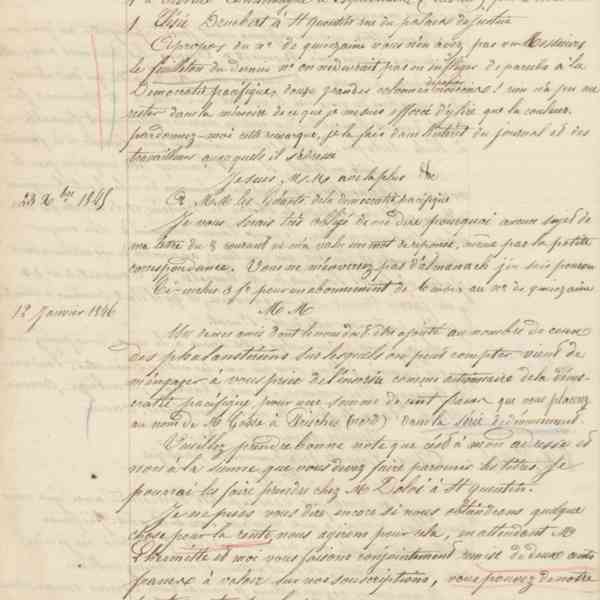 1 Elsié Dembert à St Quentin rue du palais de justice
Apropos du no de quinzaine vous n'en avez pas vu Messieurs
le feuilleton du dernier no on ne devrait pas en infliger de pareils à la
Démocratie pacifique, douze grandes colonnes ! rien n'a pu
rester dans la mémoire de ce que je me suis efforcé d'y lire que la couleur.
pardonnez-moi cette remarque, je la fais dans l'intérêt du journal et des
travailleurs auxquels il s'adresse
Je suis, Mrs avec la plus &c
23 Xbre 1845
A MM les Gérants de la démocratie pacifique
Je vous serais très obligé de me dire pourquoi aucun sujet de
ma lettre du 8 courant ne m'a valu un mot de réponse, même par la petite
correspondance. Vous ne m'enverrez pas d'almanach j'en suis pourvu
Ci-inclus 8 f pour un abonnement de 6 mois au no de quinzaine
12 Janvier 1846
M M
Un de mes amis dont le nom doit être ajouté au nombre de ceux
des phalanstériens sur lesquels on peut compter vient de
m'engager à vous prier de l'inscrire comme actionnaire de la démo-
cratie pacifique pour une somme de cent francs que vous placerez
au nom de Mr à (nord) dans la série de dévouement.
Veuillez prendre bonne note que c'est à mon adresse et
non à la sienne que vous devez faire parvenir les titres. Je
pourrai les faire prendre chez Mr Dolos à St Quentin.
Je ne puis vous dire encore si nous obtiendrons quelque
chose pour la rente nous agirons pour cela, en attendant Mr
Lhermitte et moi vous faisons conjointement remise de deux cents
francs à valoir sur nos souscriptions, vous pouvez de notre